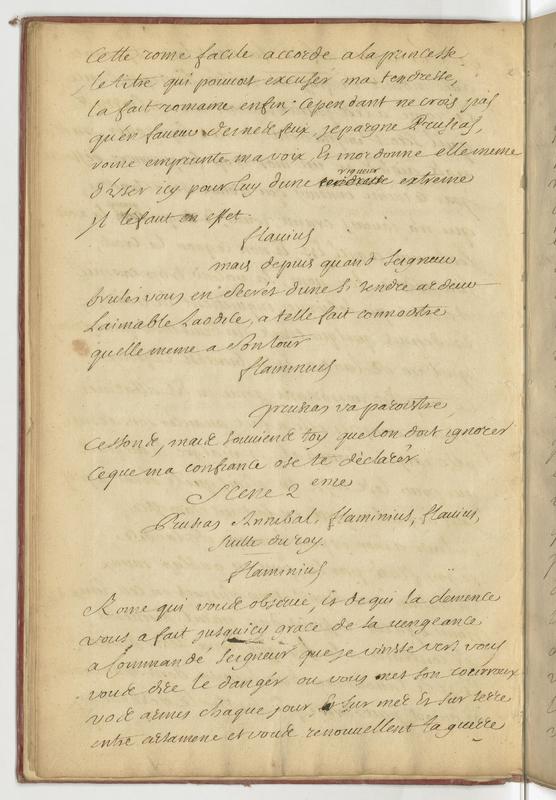 Cette rome facile accorde a la princesse
le titre qui pouvoit excuser ma tendresse,
la fait romaine enfin, cependant ne crois pas
qu'en faveur de mes feux, j'epargne Prusias,
rome emprunte ma voix, Et m'ordonne elle meme
d'user icy pour luy d'une rigueur extreme
Il le faut en effet.
flavius
mais depuis quand Seigneur
brulés vous en secret d'une si tendre ardeur
L'aimable Laodice, a telle fait connoitre
qu'elle meme a Son tour
flaminius
prusias va paroistre,
Cessons, mais souviens toy que l'on doit ignorer
Ce que ma confiance ose te déclarer.
Scene 2 eme
Prusias Annibal, flaminius, flavius,
suitte du roy.
flaminius
Rome qui vous observe, Et de qui la clemence
vous a fait jusqu'icy grace de sa vengeance
a Commandé Seigneur que je vinsse vers vous
vous dire le danger ou vous met son courroux
vos armes chaque jour, Et sur mer Et sur terre
entre artamene et vous renouvellent la guerre